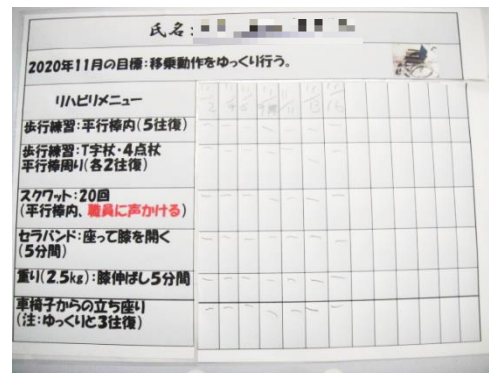 氏名:
2020年11月の目標:移乗動作をゆっくり行う。
リハビリメニュー
歩行練習:平行棒内(5往復)
歩行練習:T字杖・4点杖
平行棒周り(各2往復)
スクワット:20回
(平行棒内、職員に声かける)
セラバンド:座って膝を開く
(5分間)
重り(2.5kg):膝伸ばし5分間
車椅子からの立ち座り
(注:ゆっくりと3往復)